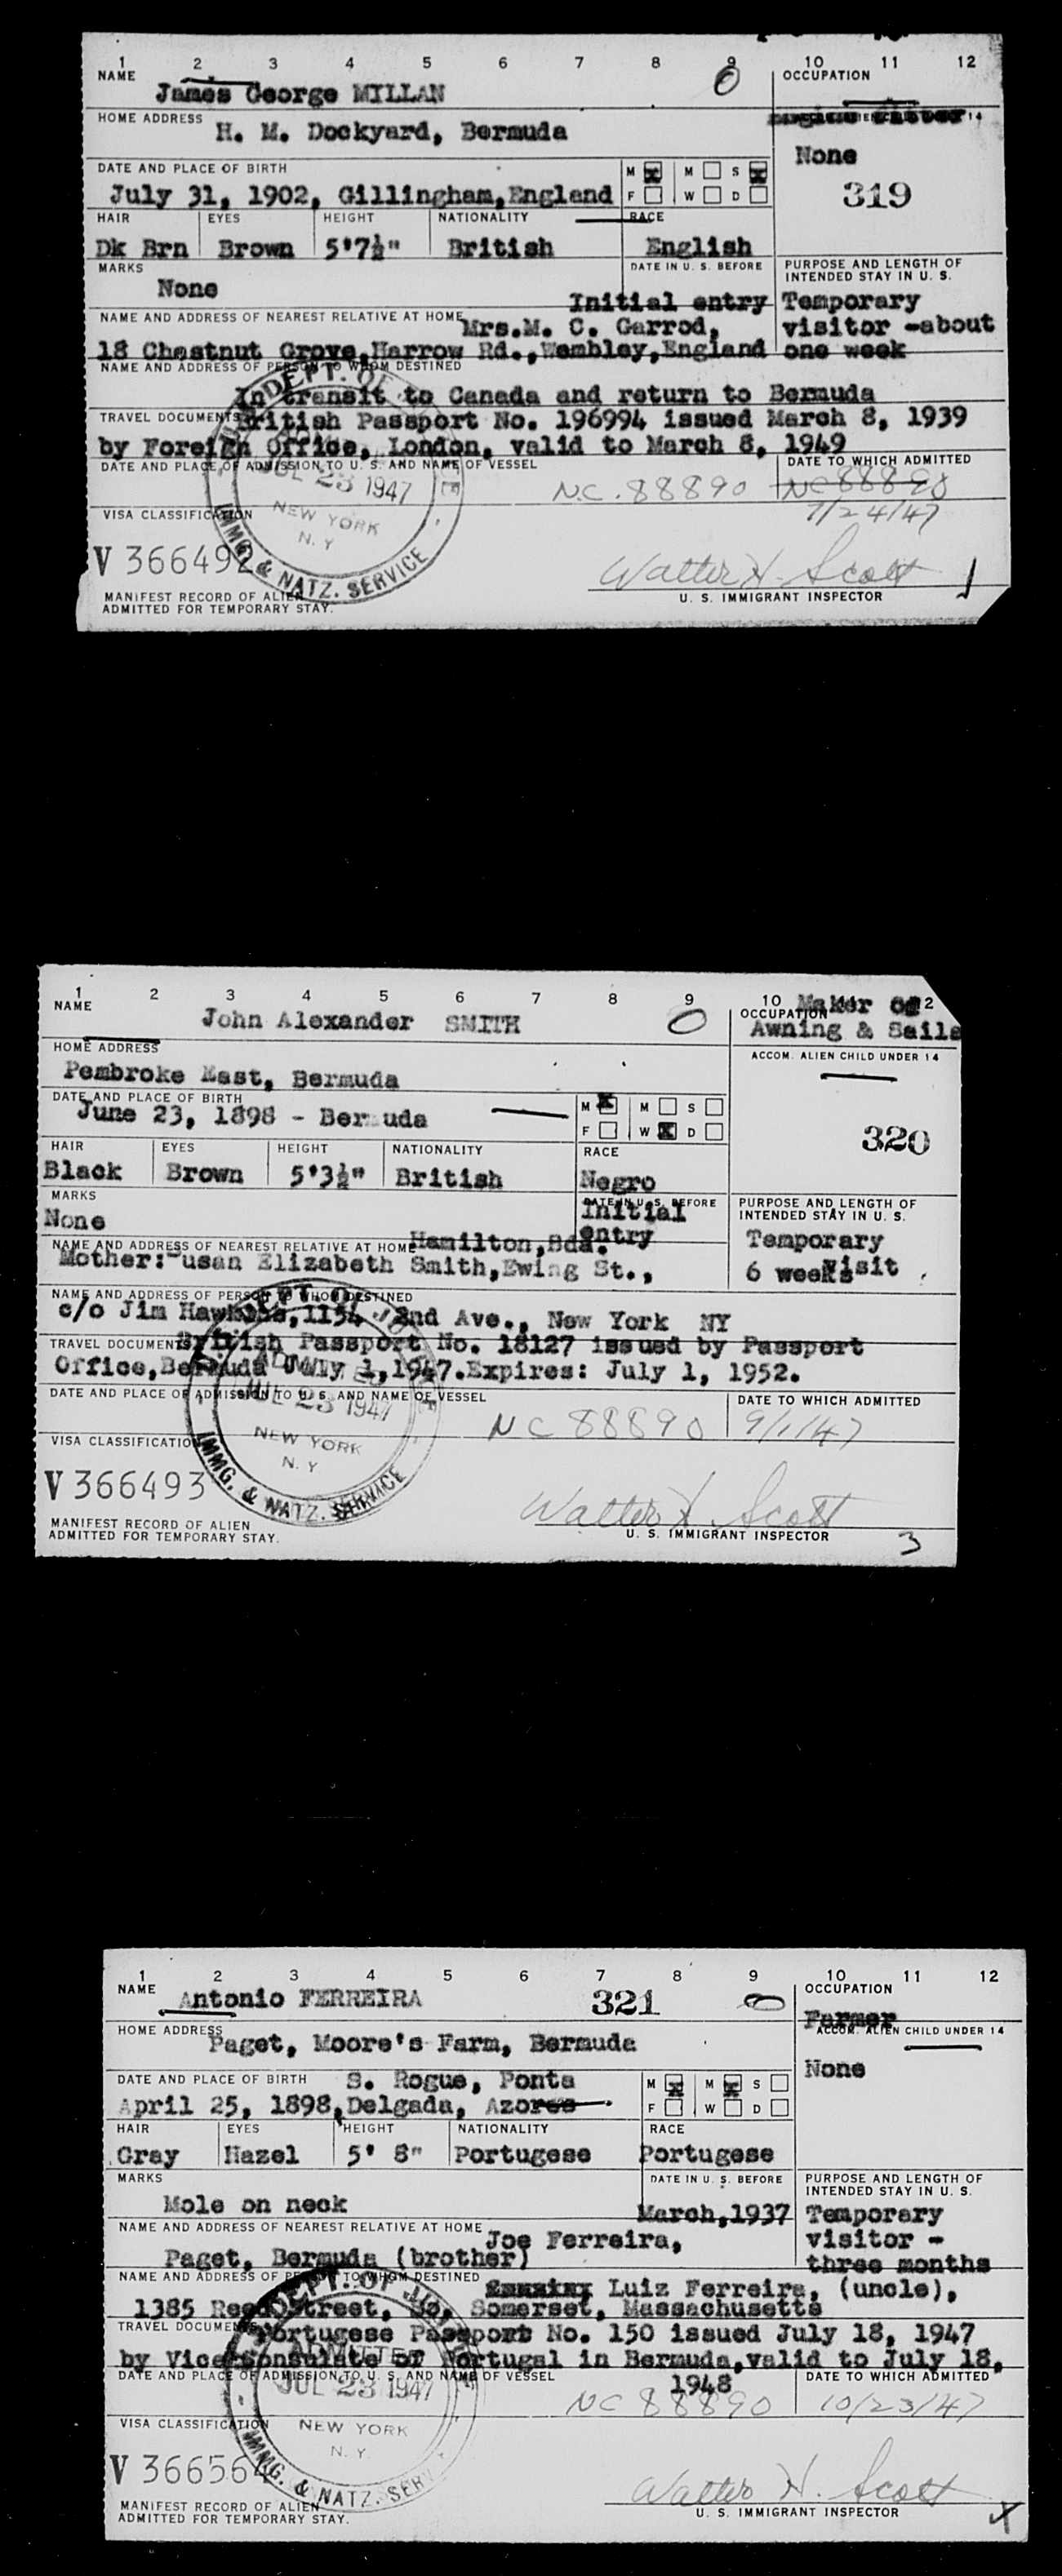 1 2 3 4 5 6 7 8 9 10 11 12
NAME
James George MILLAN
OCCUPATION
HOME ADDRESS
H. M. Dockyard, Bermuda
None
DATE AND PLACE OF BIRTH
M X M S X
July 31, 1902, Gillingham,England
F W D
319
HAIR EYES HEIGHT NATIONALITY RACE
Dk Brn Brown 5'7½" British English
MARKS
None
DATE IN U. S. BEFORE
Initial entry
PURPOSE AND LENGTH OF
INTENDED STAY IN U. S.
Temporary
visitor -about
one week
NAME AND ADDRESS OF NEAREST RELATIVE AT HOME
Mrs.M. C. Garrod,
18 Chestnut Grove,Harrow Rd.,Wembley,England
NAME AND ADDRESS OF PERSON TO WHOM DESTINED
In transit to Canada and return to Bermuda
TRAVEL DOCUMENTS
British Passport No. 196994 issued March 8, 1939
by Foreign Office, London, valid to March 8, 1949
DATE AND PLACE OF ADMISSION TO U. S. AND NAME OF VESSEL
DATE TO WHICH ADMITTED
N.C. 88890
NC 88890
7/24/47
DEPT. OF
JUL 23 1947
NEW YORK
N. Y
IMMG. & NATZ. SERVICE
VISA CLASSIFICATION
V 366492
Walter H. Scott
U. S. IMMIGRANT INSPECTOR
1
MANIFEST RECORD OF ALIEN
ADMITTED FOR TEMPORARY STAY.
1 2 3 4 5 6 7 8 9 10 2
NAME
John Alexander SMITH
OCCUPATION
Maker of
Awning & Sails
HOME ADDRESS
Pembroke East, Bermuda
ACCOM. ALIEN CHILD UNDER 14
DATE AND PLACE OF BIRTH
June 23, 1898 - Bermuda
M X M S
F W X D
320
HAIR EYES HEIGHT NATIONALITY RACE
Black Brown 5'3½" British Negro
MARKS
None
DATE IN U. S. BEFORE
Initial
entry
PURPOSE AND LENGTH OF
INTENDED STAY IN U. S.
Temporary
visit
6 weeks
NAME AND ADDRESS OF NEAREST RELATIVE AT HOME
Hamilton,Bda.
Mother: Susan Elizabeth Smith,Ewing St.,
NAME AND ADDRESS OF PERSON TO WHOM DESTINED
c/o Jim 1154 2nd Ave., New York NY
TRAVEL DOCUMENTS
British Passport No. 18127 issued by Passport
Office,Bermuda July 1,1947.Expires: July 1, 1952.
DATE AND PLACE OF ADMISSION TO U. S. AND NAME OF VESSEL
DATE TO WHICH ADMITTED
NC 88890
9/1/47
JUL 23 1947
NEW YORK
N. Y
IMMG. & NATZ. SERVICE
VISA CLASSIFICATION
V 366493
Walter H. Scott
U. S. IMMIGRANT INSPECTOR
3
MANIFEST RECORD OF ALIEN
ADMITTED FOR TEMPORARY STAY.
1 2 3 4 5 6 7 8 9 10 11 12
NAME
Antonio FERREIRA
321
OCCUPATION
Farmer
HOME ADDRESS
Paget, Moore's Farm, Bermuda
ACCOM. ALIEN CHILD UNDER 14
None
DATE AND PLACE OF BIRTH
S. Rogue, Ponta
April 25, 1898,Delgada, Azores
M X M X S
F W D
HAIR EYES HEIGHT NATIONALITY RACE
Gray Hazel 5' 8" Portugese Portugese
MARKS
Mole on neck
DATE IN U. S. BEFORE
March,1937
PURPOSE AND LENGTH OF
INTENDED STAY IN U. S.
Temporary
visitor -
three months
NAME AND ADDRESS OF NEAREST RELATIVE AT HOME
Joe Ferreira,
Paget, Bermuda (brother)
NAME AND ADDRESS OF PERSON TO WHOM DESTINED
Luiz Ferreira, (uncle),
1385 Reed Street, So. Somerset, Massachusetts
TRAVEL DOCUMENTS
Portugese Passport No. 150 issued July 18, 1947
by Vice Consulate of Portugal in Bermuda,valid to July 18,
1948
DATE AND PLACE OF ADMISSION TO U. S. AND NAME OF VESSEL
DATE TO WHICH ADMITTED
NC 88890
10/23/47
DEPT. OF
ADMITTED
JUL 23 1947
NEW YORK
N. Y.
IMMG. & NATZ. SERV
VISA CLASSIFICATION
V 366564
Walter H. Scott
U. S. IMMIGRANT INSPECTOR
MANIFEST RECORD OF ALIEN
ADMITTED FOR TEMPORARY STAY.